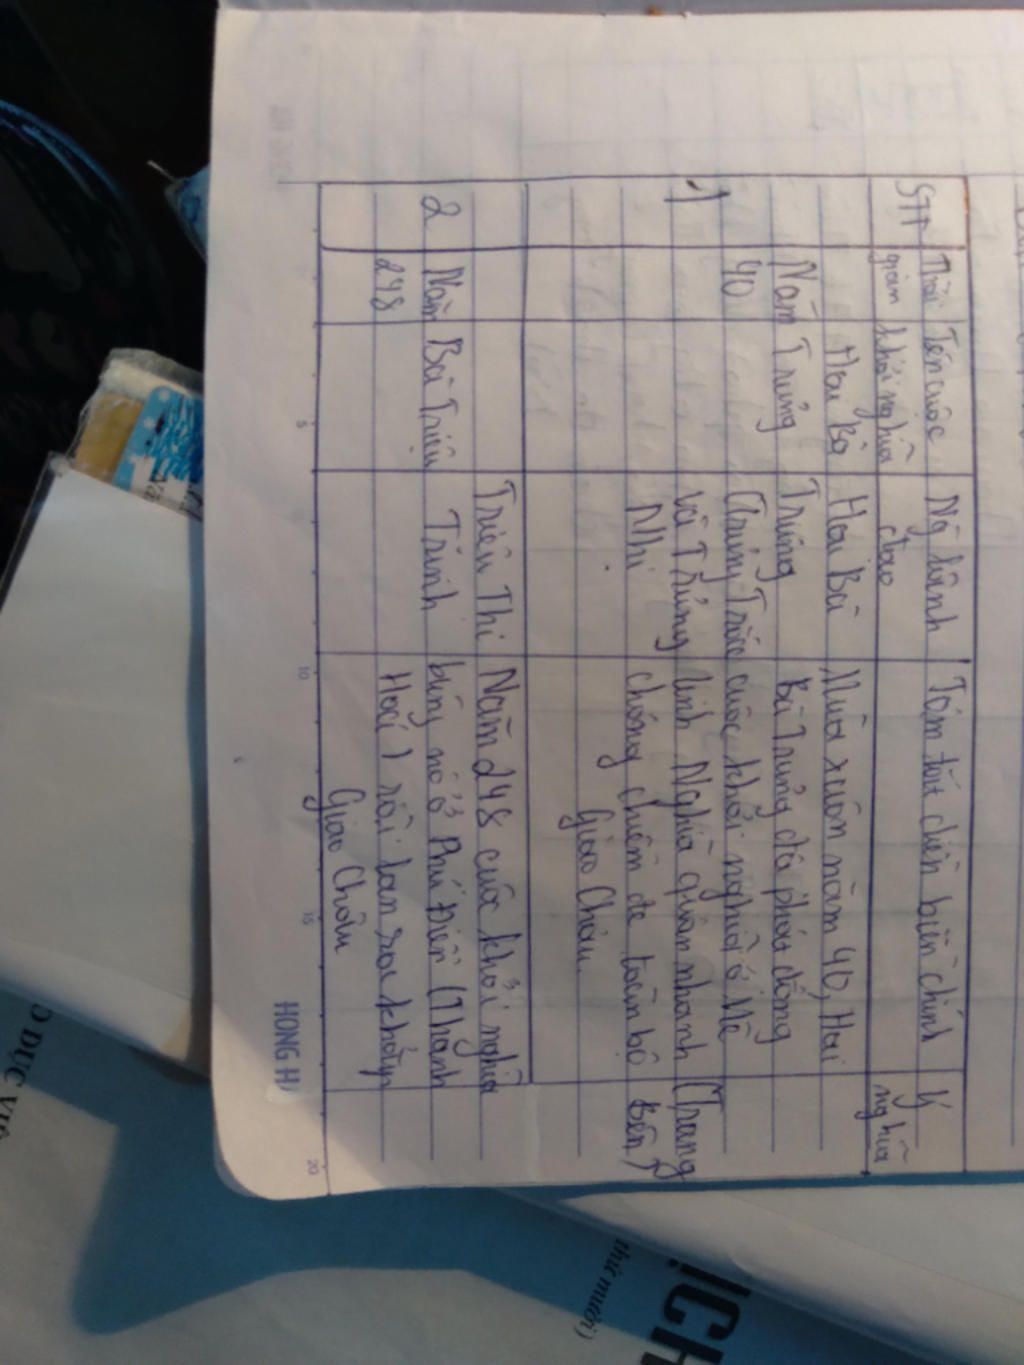 STT
Thời
gian
Tên cuộc
khởi nghĩa
Người lãnh
đạo
Tóm tắt diễn biến chính
Ý
nghĩa
1
Năm
40
Hai Bà
Trưng
Hai Bà
Trưng
(Trưng Trắc
và Trưng
Nhị
Mùa xuân năm 40, Hai
Bà Trưng đã phát động
cuộc khởi nghĩa ở Mê
Linh. Nghĩa quân nhanh
chóng chiếm đc toàn bộ
Giao Châu.
(Trang
Bên)
2
Năm
248
Bà Triệu
Triệu Thị
Trinh
Năm 248 cuộc khởi nghĩa
bùng nổ ở Phú Điền (Thanh
Hoá) rồi lan ra khắp
Giao Châu
HONG H
5
10
15
20
O DỤC VIỆ
ỊCH
thứ mười)